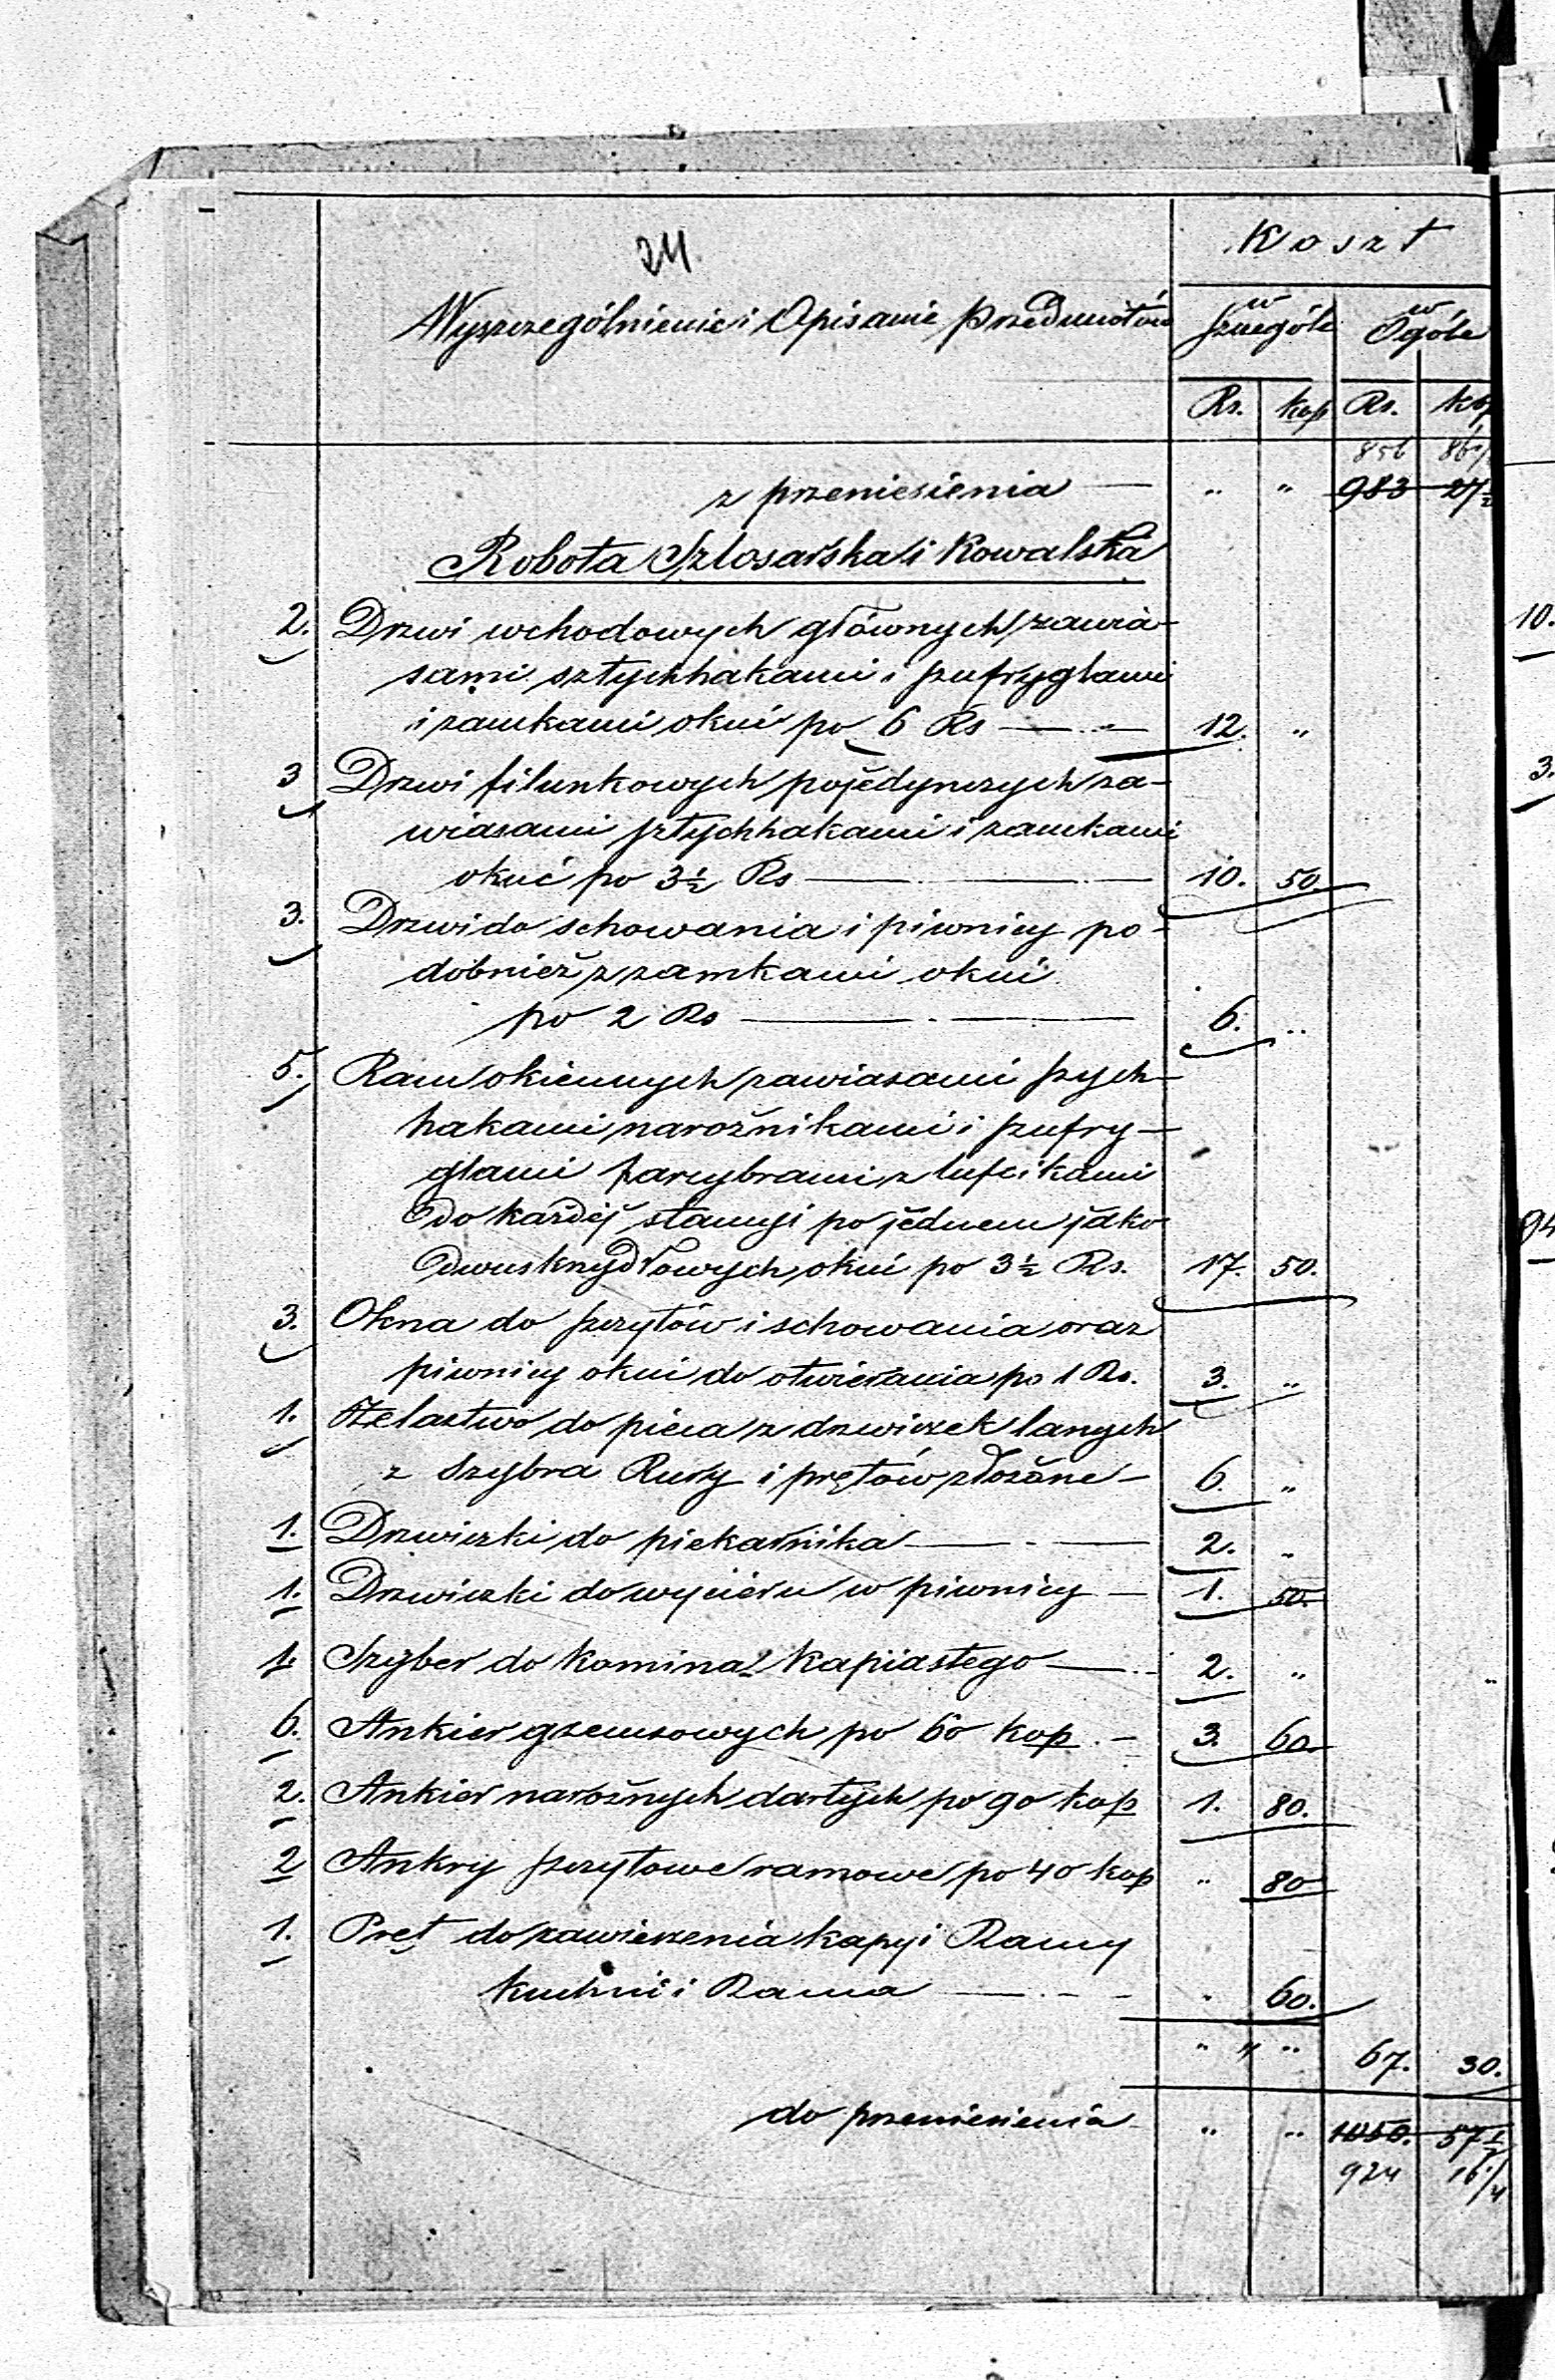 24
Koszt
Wyszczególnienie i Opisanie Przedmiotów
w Szczególe
w Ogóle
Rs. kop Rs. kop
856 86 1/
z przeniesienia — " " 983 27 1/2
Robota Szlosarska i Kowalska
2. Drzwi wchodowych głównych zawia-
sami sztychhakami i szufryglami
i zamkami okuć po 6 Rs — 12. "
3 Drzwi filunkowych pojedynczych za-
wiasami sztychhakami i zamkami
okuć po 3 1/2 Rs — 10. 50.
3. Drzwi do schowania i piwnicy po-
dobnież z zamkami okuć
po 2 Rs — 6. "
5. Ram okiennych zawiasami szych-
hakami narożnikami i szufry-
glami z lufcikami
do każdej stancyi po jednem jako
dwuskrzydłowych okuć po 3 1/2 Rs. 17. 50.
3. Okna do szczytów i schowania oraz
piwnicy okuć do otwierania po 1 Rs. 3. "
1. Żelastwo do pieca z drzwiczek lanych
z Szybra Rury i prętów złożone — 6. "
1. Drzwiczki do piekarnika — 2. "
1. Drzwiczki do wycieru w piwnicy — 1. 50.
1. Szyber do komina kapiastego — 2. "
6. Ankier gzemsowych po 60 kop. — 3. 60.
2. Ankier narożnych dartych po 90 kop 1. 80.
2 Ankry szczytowe ramowe po 40 kop " 80
1. Pręt do zawieszenia kapy i Ramy
kuchni i Rama — " 60.
" " " 67. 30.
do przeniesienia " " 1050. 57 1/2
924 16 1/4
10.
3.
94